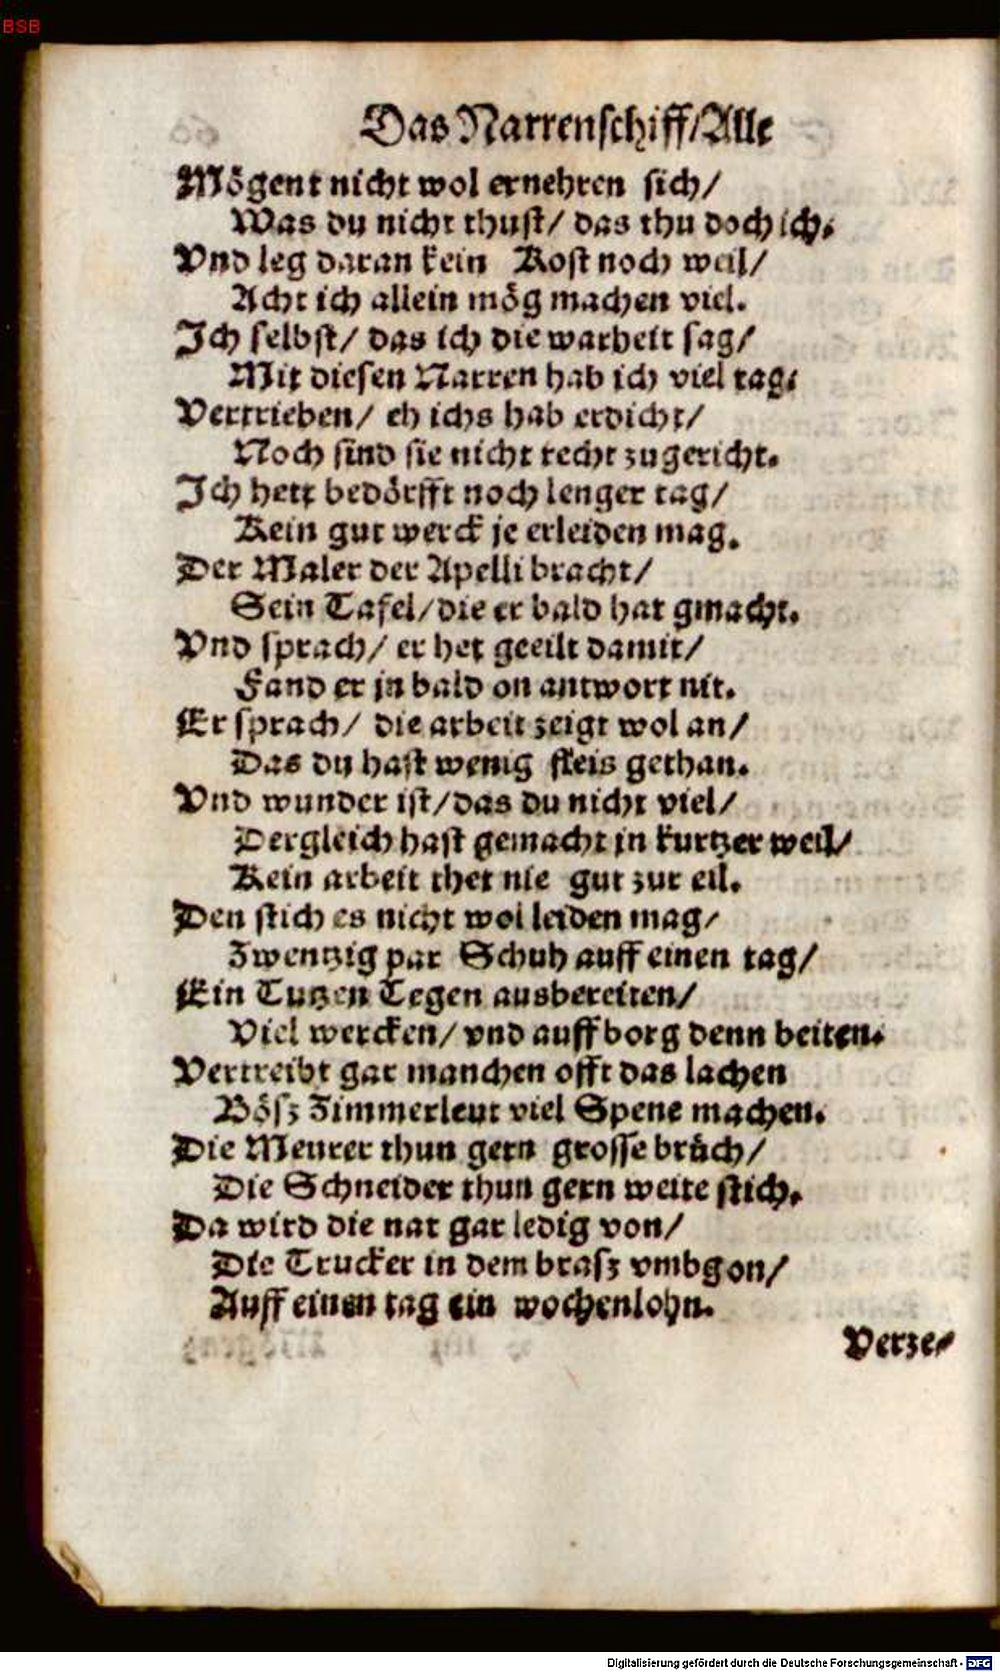 BSB
Das Narrenschiff/Alle
Mögent nicht wol ernehren sich/
Was du nicht thust/ das thu doch ich.
Vnd leg daran kein Kost noch weil/
Acht ich allein mög machen viel.
Ich selbst/ das ich die warheit sag/
Mit diesen Narren hab ich viel tag.
Vertrieben/ eh ichs hab erdicht/
Noch sind sie nicht recht zugericht.
Ich hett bedörfft noch lenger tag/
Kein gut werck je erleiden mag.
Der Maler der Apelli bracht/
Sein Tafel/die er bald hat gmacht.
Vnd sprach/ er het geeilt damit/
Fand er jn bald on antwort nit.
Er sprach/ die arbeit zeigt wol an/
Das du hast wenig fleis gethan.
Vnd wunder ist/das du nicht viel/
Dergleich hast gemacht jn kurtzer weil/
Kein arbeit thet nie gut zur eil.
Den stich es nicht wol leiden mag/
Zwentzig par Schuh auff einen tag/
Ein Tutzen Tegen ausbereiten/
Viel wercken/ vnd auff borg denn beiten.
Vertreibt gar manchen offt das lachen
Bösz Zimmerleut viel Spene machen.
Die Meurer thun gern grosse brüch/
Die Schneider thun gern weite stich.
Da wird die nat gar ledig von/
Die Trucker in dem brasz vmbgon/
Auff einen tag ein wochenlohn.
Verze-
Digitalisierung gefördert durch die Deutsche Forschungsgemeinschaft - DFG